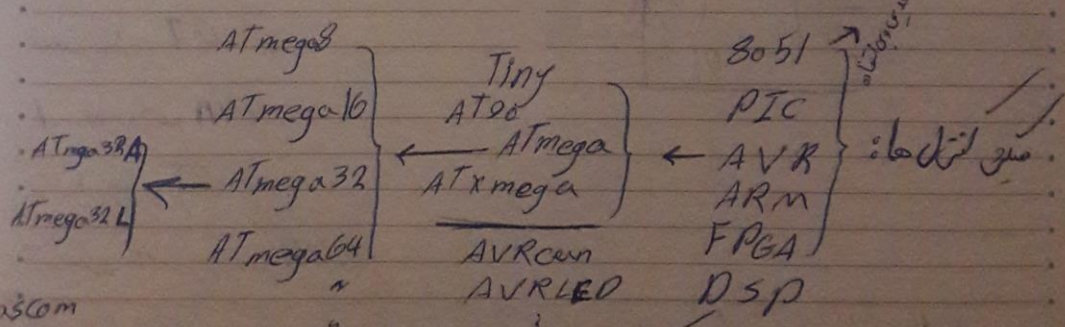 میکروکنترلرها:
8051
PIC
AVR
ARM
FPGA
DSP
Tiny
AT90
ATmega
ATxmega
AVRcan
AVRLED
ATmega8
ATmega16
ATmega32
ATmega64
"
ATmega32A
ATmega32L
ascom